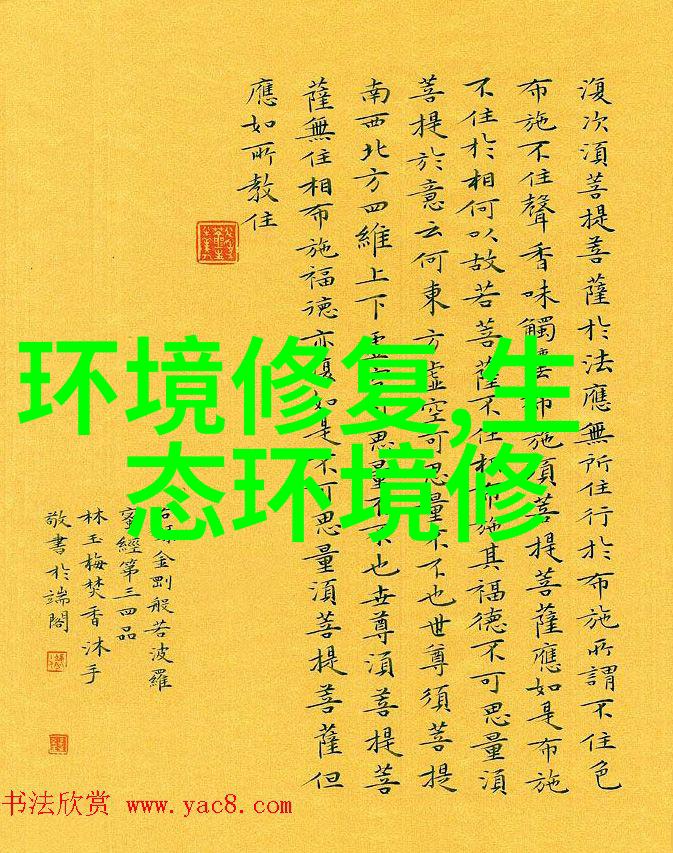 復次湏菩提菩薩於法應無所住行於布施所謂不住色
布施不住聲香味觸布施湏菩提菩薩應如是布施
不住於相何以故若菩薩不住相布施其福德不可思量湏
菩提於意云何東方虛空可思量不不也世尊須菩提
南西北方四維上下思量不不也世尊湏菩提菩
薩無住相布施福德亦復如是不可思量湏菩提菩薩但
應如所教住
金剛般若波羅
蜜經第三四品
林玉梅焚香沐手
敬書於端閣
环境修复,生
态环境修
书法欣赏 www.yac8.com